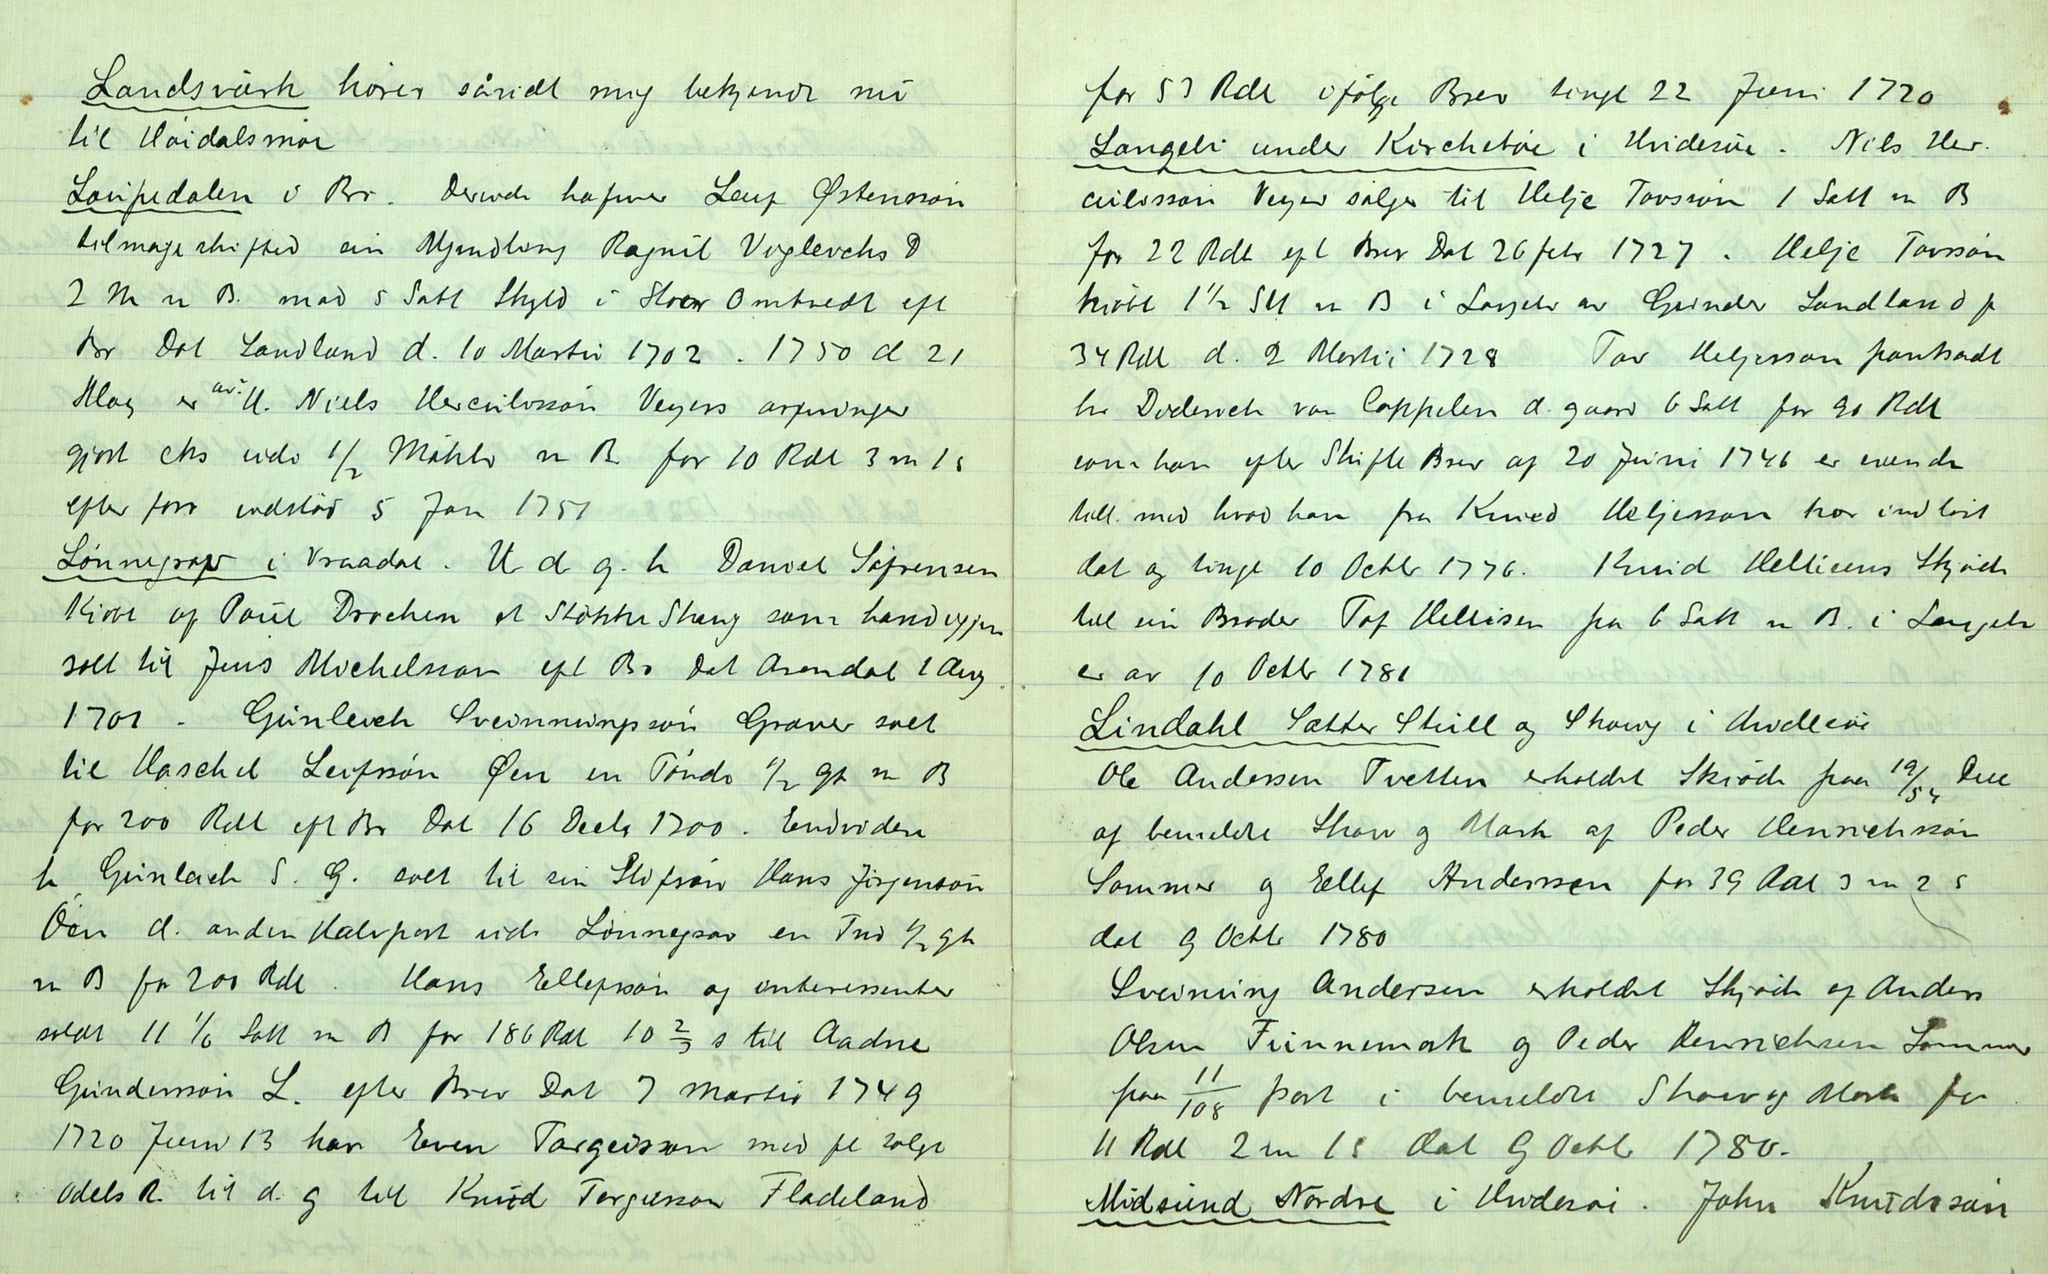 Landsvärk hører såvidt mig bekjendt nu
til Høidalsmo
Løupedalen i Br. Derude hafuer Leuf Østensson
tilmageskifted sin Myndling Ragnil Vuglevchs D
2 M n B. mod 5 Satt Skyld i Omtvedt eft
Br Dat Landland d. 10 Martii 1702. 1750 d 21
Mag er av H. Niels Herculesson Veyers arfuinger
gjort eks udi 1/2 Mäkle n B for 10 Rdl 3 m 1 s
efter forr indstød 5 Jan 1751
Lønnegraf i Vraadal. U d g. h Daniel Säfrensen
Kiøbt af Poul Drochen et Støkke Skoug som hand igjen
solt til Jens Michelsson eft Br Dat Arendal 1 Aug
1701 - Gunleich Sveinnungsøn Graver solt
til Haschel Leifssøn Øen en Tønde 1/2 gh n B
for 200 Rdl eft Br Dat 16 Decb 1700. Endvidere
h Gunleich S. G. solt til sin Stifsøn Hans Jørgensøn
Öen d. anden Halvpart udi Lønnegrav en Tnd 1/2 gh
n B for 200 Rdl. Hans Ellefssøn og interessenter
soldt 11 1/6 Satt n B for 186 Rdl 10 2/3 s til Aadne
Gunderssøn L. efter Brev Dat 7 Martii 1749
1720 Juni 13 har Even Torgeisson med fl solgt
Odels R. til d. g til Knud Torgiersson Fladeland
for 53 Rdl ifølge Brev tingl 22 Juni 1720
Langeli under Kirchebøe i Hvidesøe. Nils Her-
culisson Veyer sælger til Helje Tovssøn 1 Satt n B
for 22 Rdl eft Brev Dat 26 febr 1727. Helje Tovssøn
kiøbt 1 1/2 Stt n B i Langeli av Gunder Landland f
34 Rdl d. 2 Martii 1728 Tov Heljesson pantsadt
hr Diderich von Cappelen d. gaard 6 Satt for 90 Rdl
som han efter Skifte Brev af 20 Juni 1746 er eiende
till med hvad han fra Knud Heljesson har indløst
dat og tingl 10 Octbr 1776. Knud Hellisens Skjøde
till sin Broder Tof Hellisen paa 6 Satt n B. i Langeli
er av 10 Octbr 1781
Lindahl Sætter Stull og Skoug i Hvidesöe
Ole Andersen Tvetten erholdet Skiøde paa 19/54 Deel
af bemeldte Skov og Mark af Peder Henrichssøn
Sommer og Ellef Anderssen for 39 Rdl 3 m 2 s
dat 9 Octbr 1780
Sveinung Andersen erholdet Skjøde af Anders
Olsen Finnemork og Peder Henrichsen Sommer
paa 11/108 part i bemeldte Skov og Mark for
11 Rdl 2 m 1 s dat 9 Octbr 1780.
Midsund Nordre i Hvidesøi. John Knudssøn